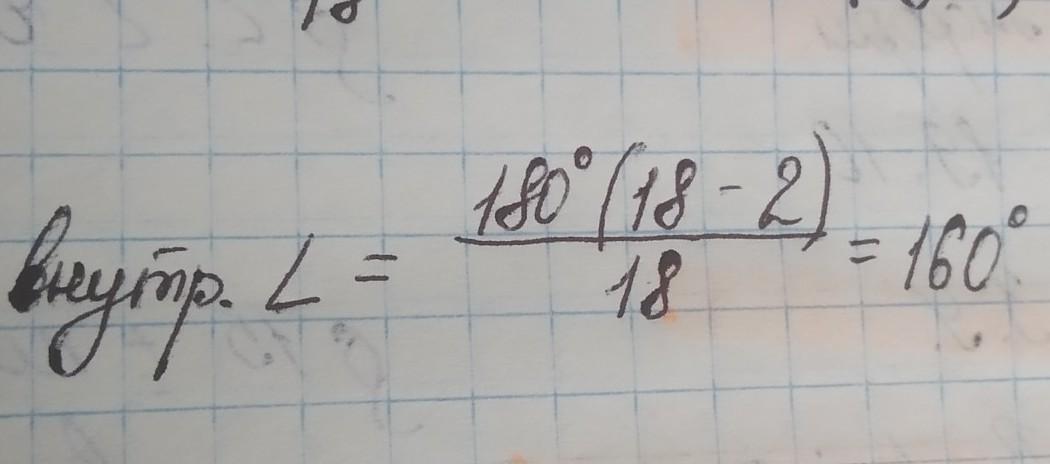 18
внутр. ∠ = 180°(18-2)/18 = 160°